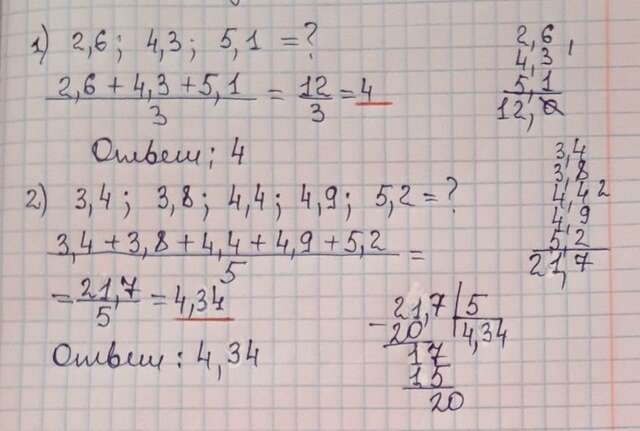 1) 2,6; 4,3; 5,1 = ?
2,6 + 4,3 + 5,1
3
= 12
3
= 4
2,6
4,3
5,1
12,0
Ответ; 4
2) 3,4; 3,8; 4,4; 4,9; 5,2 = ?
3,4 + 3,8 + 4,4 + 4,9 + 5,2
5
=
= 21,7
5
= 4,34
3,4
3,8
4,4 2
4,9
5,2
21,7
21,7 5
- 20 4,34
17
15
20
Ответ: 4,34